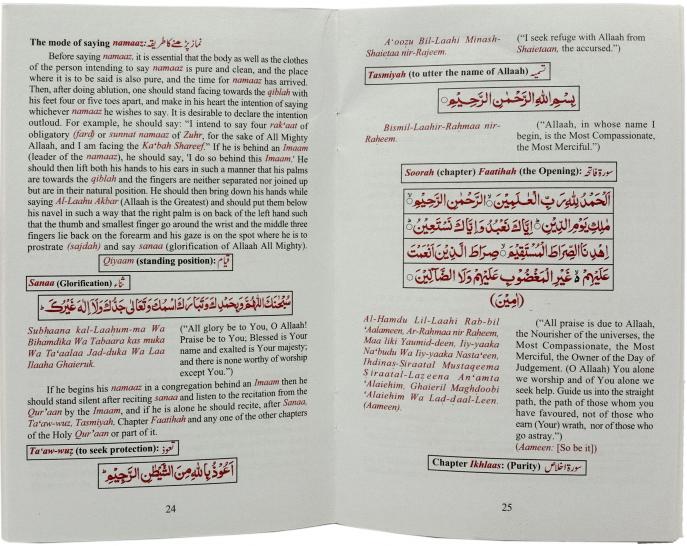 The mode of saying namaaz: نماز پڑھنے کا طریقہ
Before saying namaaz, it is essential that the body as well as the clothes
of the person intending to say namaaz is pure and clean, and the place
where it is to be said is also pure, and the time for namaaz has arrived.
Then, after doing ablution, one should stand facing towards the qiblah with
his feet four or five toes apart, and make in his heart the intention of saying
whichever namaaz he wishes to say. It is desirable to declare the intention
outloud. For example, he should say: “I intend to say four rak'aat of
obligatory (fard) or sunnat namaaz of Zuhr, for the sake of All Mighty
Allaah, and I am facing the Ka'bah Shareef.” If he is behind an Imaam
(leader of the namaaz), he should say, 'I do so behind this Imaam.' He
should then lift both his hands to his ears in such a manner that his palms
are towards the qiblah and the fingers are neither separated nor joined up
but are in their natural position. He should then bring down his hands while
saying Al-Laahu Akbar (Allaah is the Greatest) and should put them below
his navel in such a way that the right palm is on the back of left hand such
that the thumb and smallest finger go around the wrist and the middle three
fingers lie back on the forearm and his gaze is on the spot where he is to
prostrate (sajdah) and say sanaa (glorification of Allaah All Mighty).
Qiyaam (standing position): قیام
Sanaa (Glorification) ثناء
سُبْحٰنَكَ اللّٰهُمَّ وَبِحَمْدِكَ وَتَبَارَكَ اسْمُكَ وَتَعَالٰى جَدُّكَ وَلَا اِلٰهَ غَيْرُكَ ؕ
Subhaana kal-Laahum-ma Wa
Bihamdika Wa Tabaara kas muka
Wa Ta'aalaa Jad-duka Wa Laa
Ilaaha Ghaieruk.
(“All glory be to You, O Allaah!
Praise be to You; Blessed is Your
name and exalted is Your majesty;
and there is none worthy of worship
except You.”)
If he begins his namaaz in a congregation behind an Imaam then he
should stand silent after reciting sanaa and listen to the recitation from the
Qur'aan by the Imaam, and if he is alone he should recite, after Sanaa,
Ta'aw-wuz, Tasmiyah, Chapter Faatihah and any one of the other chapters
of the Holy Qur'aan or part of it.
Ta'aw-wuz (to seek protection): تعوذ
اَعُوْذُ بِاللّٰهِ مِنَ الشَّيْطٰنِ الرَّجِيْمِ ؕ
24
A‘oozu Bil-Laahi Minash-
Shaietaa nir-Rajeem.
(“I seek refuge with Allaah from
Shaietaan, the accursed.”)
Tasmiyah (to utter the name of Allaah) تسمیہ
بِسْمِ اللّٰهِ الرَّحْمٰنِ الرَّحِيْمِ ○
Bismil-Laahir-Rahmaa nir-
Raheem.
(“Allaah, in whose name I
begin, is the Most Compassionate,
the Most Merciful.”)
Soorah (chapter) Faatihah (the Opening): سورۃ فاتحہ
اَلْحَمْدُ لِلّٰهِ رَبِّ الْعٰلَمِيْنَ ○ الرَّحْمٰنِ الرَّحِيْمِ ○
مٰلِكِ يَوْمِ الدِّيْنِ ؕ اِيَّاكَ نَعْبُدُ وَاِيَّاكَ نَسْتَعِيْنُ ؕ
اِهْدِنَا الصِّرَاطَ الْمُسْتَقِيْمَ ○ صِرَاطَ الَّذِيْنَ اَنْعَمْتَ
عَلَيْهِمْ ە غَيْرِ الْمَغْضُوْبِ عَلَيْهِمْ وَلَا الضَّآلِّيْنَ ○
(اٰمِيْنَ)
Al-Hamdu Lil-Laahi Rab-bil
‘Aalameen, Ar-Rahmaa nir Raheem,
Maa liki Yaumid-deen, Iiy-yaaka
Na‘budu Wa Iiy-yaaka Nasta‘een,
Ihdinas-Siraatal Mustaqeema
Siraatal-Lazeena An‘amta
‘Alaiehim, Ghaieril Maghdoobi
‘Alaiehim Wa Lad-daal-Leen.
(Aameen).
(“All praise is due to Allaah,
the Nourisher of the universes, the
Most Compassionate, the Most
Merciful, the Owner of the Day of
Judgement. (O Allaah) You alone
we worship and of You alone we
seek help. Guide us into the straight
path, the path of those whom you
have favoured, not of those who
earn (Your) wrath, nor of those who
go astray.”)
(Aameen: [So be it])
Chapter Ikhlaas: (Purity) سورۃ اخلاص
25